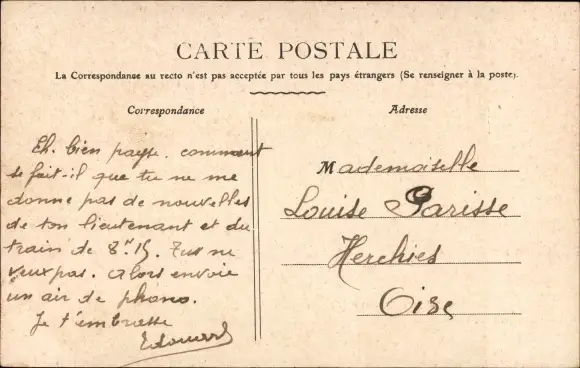 CARTE POSTALE
La Correspondance au recto n'est pas acceptée par tous les pays étrangers (Se renseigner à la poste).
Correspondance
Eh. bien payse. comment
se fait-il que tu ne me
donne pas de nouvelles
de ton lieutenant et du
train de 8h 15. Tu ne
veux pas. Alors envoie
un air de phono.
Je t'embrasse
Edouard
Adresse
Mademoiselle
Louise Parisse
Herchies
Oise